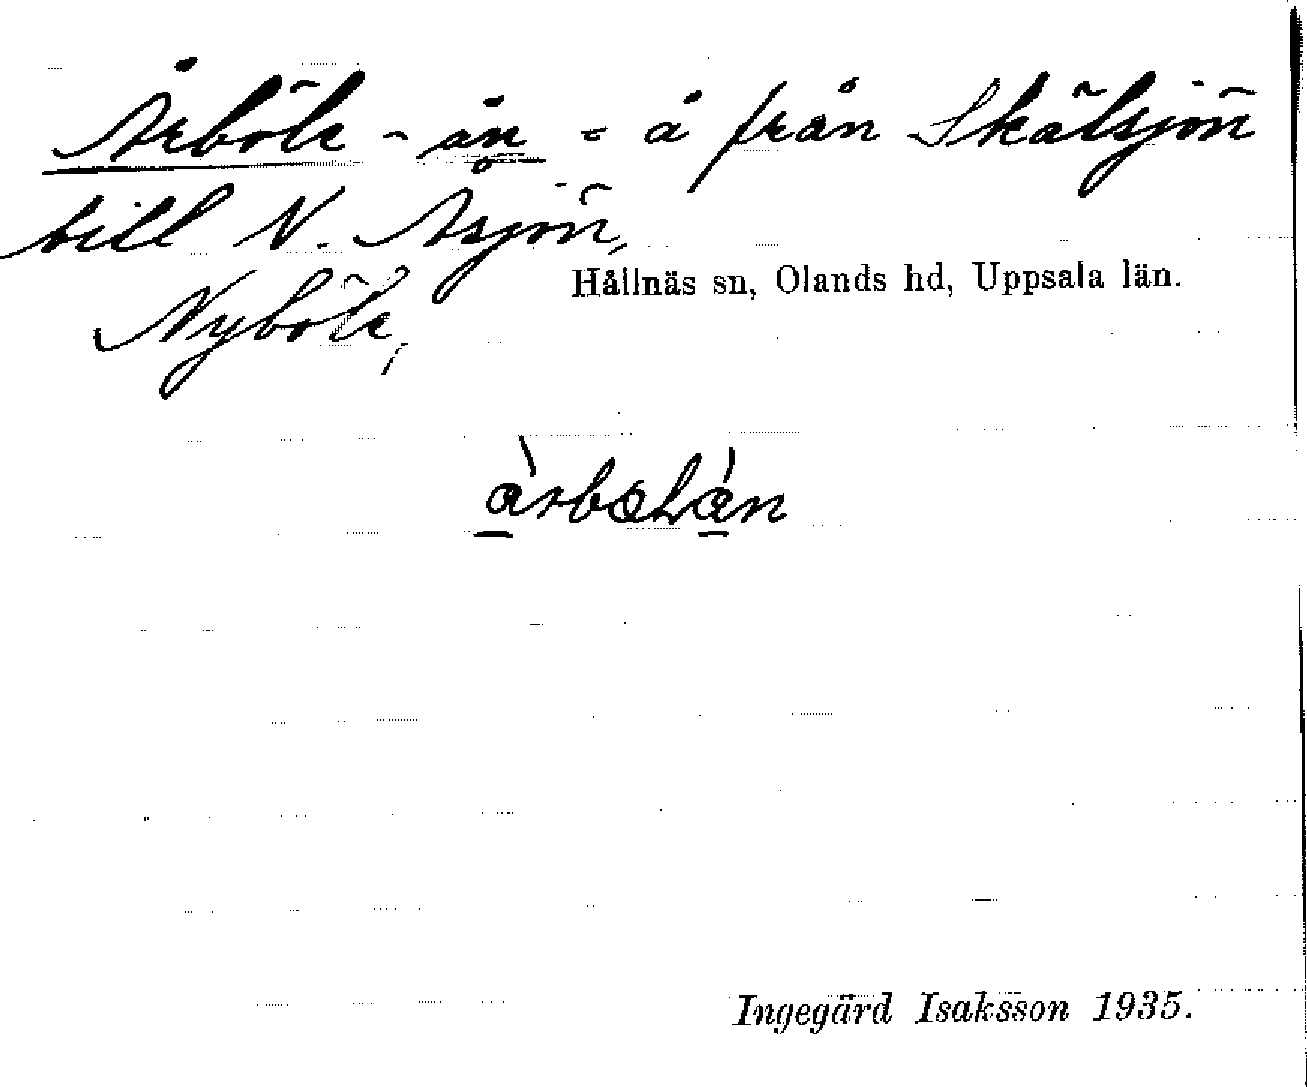 Årböle - ån = å från Skälsjön
till N. Åsjön,
Hållnäs sn, Olands hd, Uppsala län.
Nyböle,
Ingegärd Isaksson 1935.